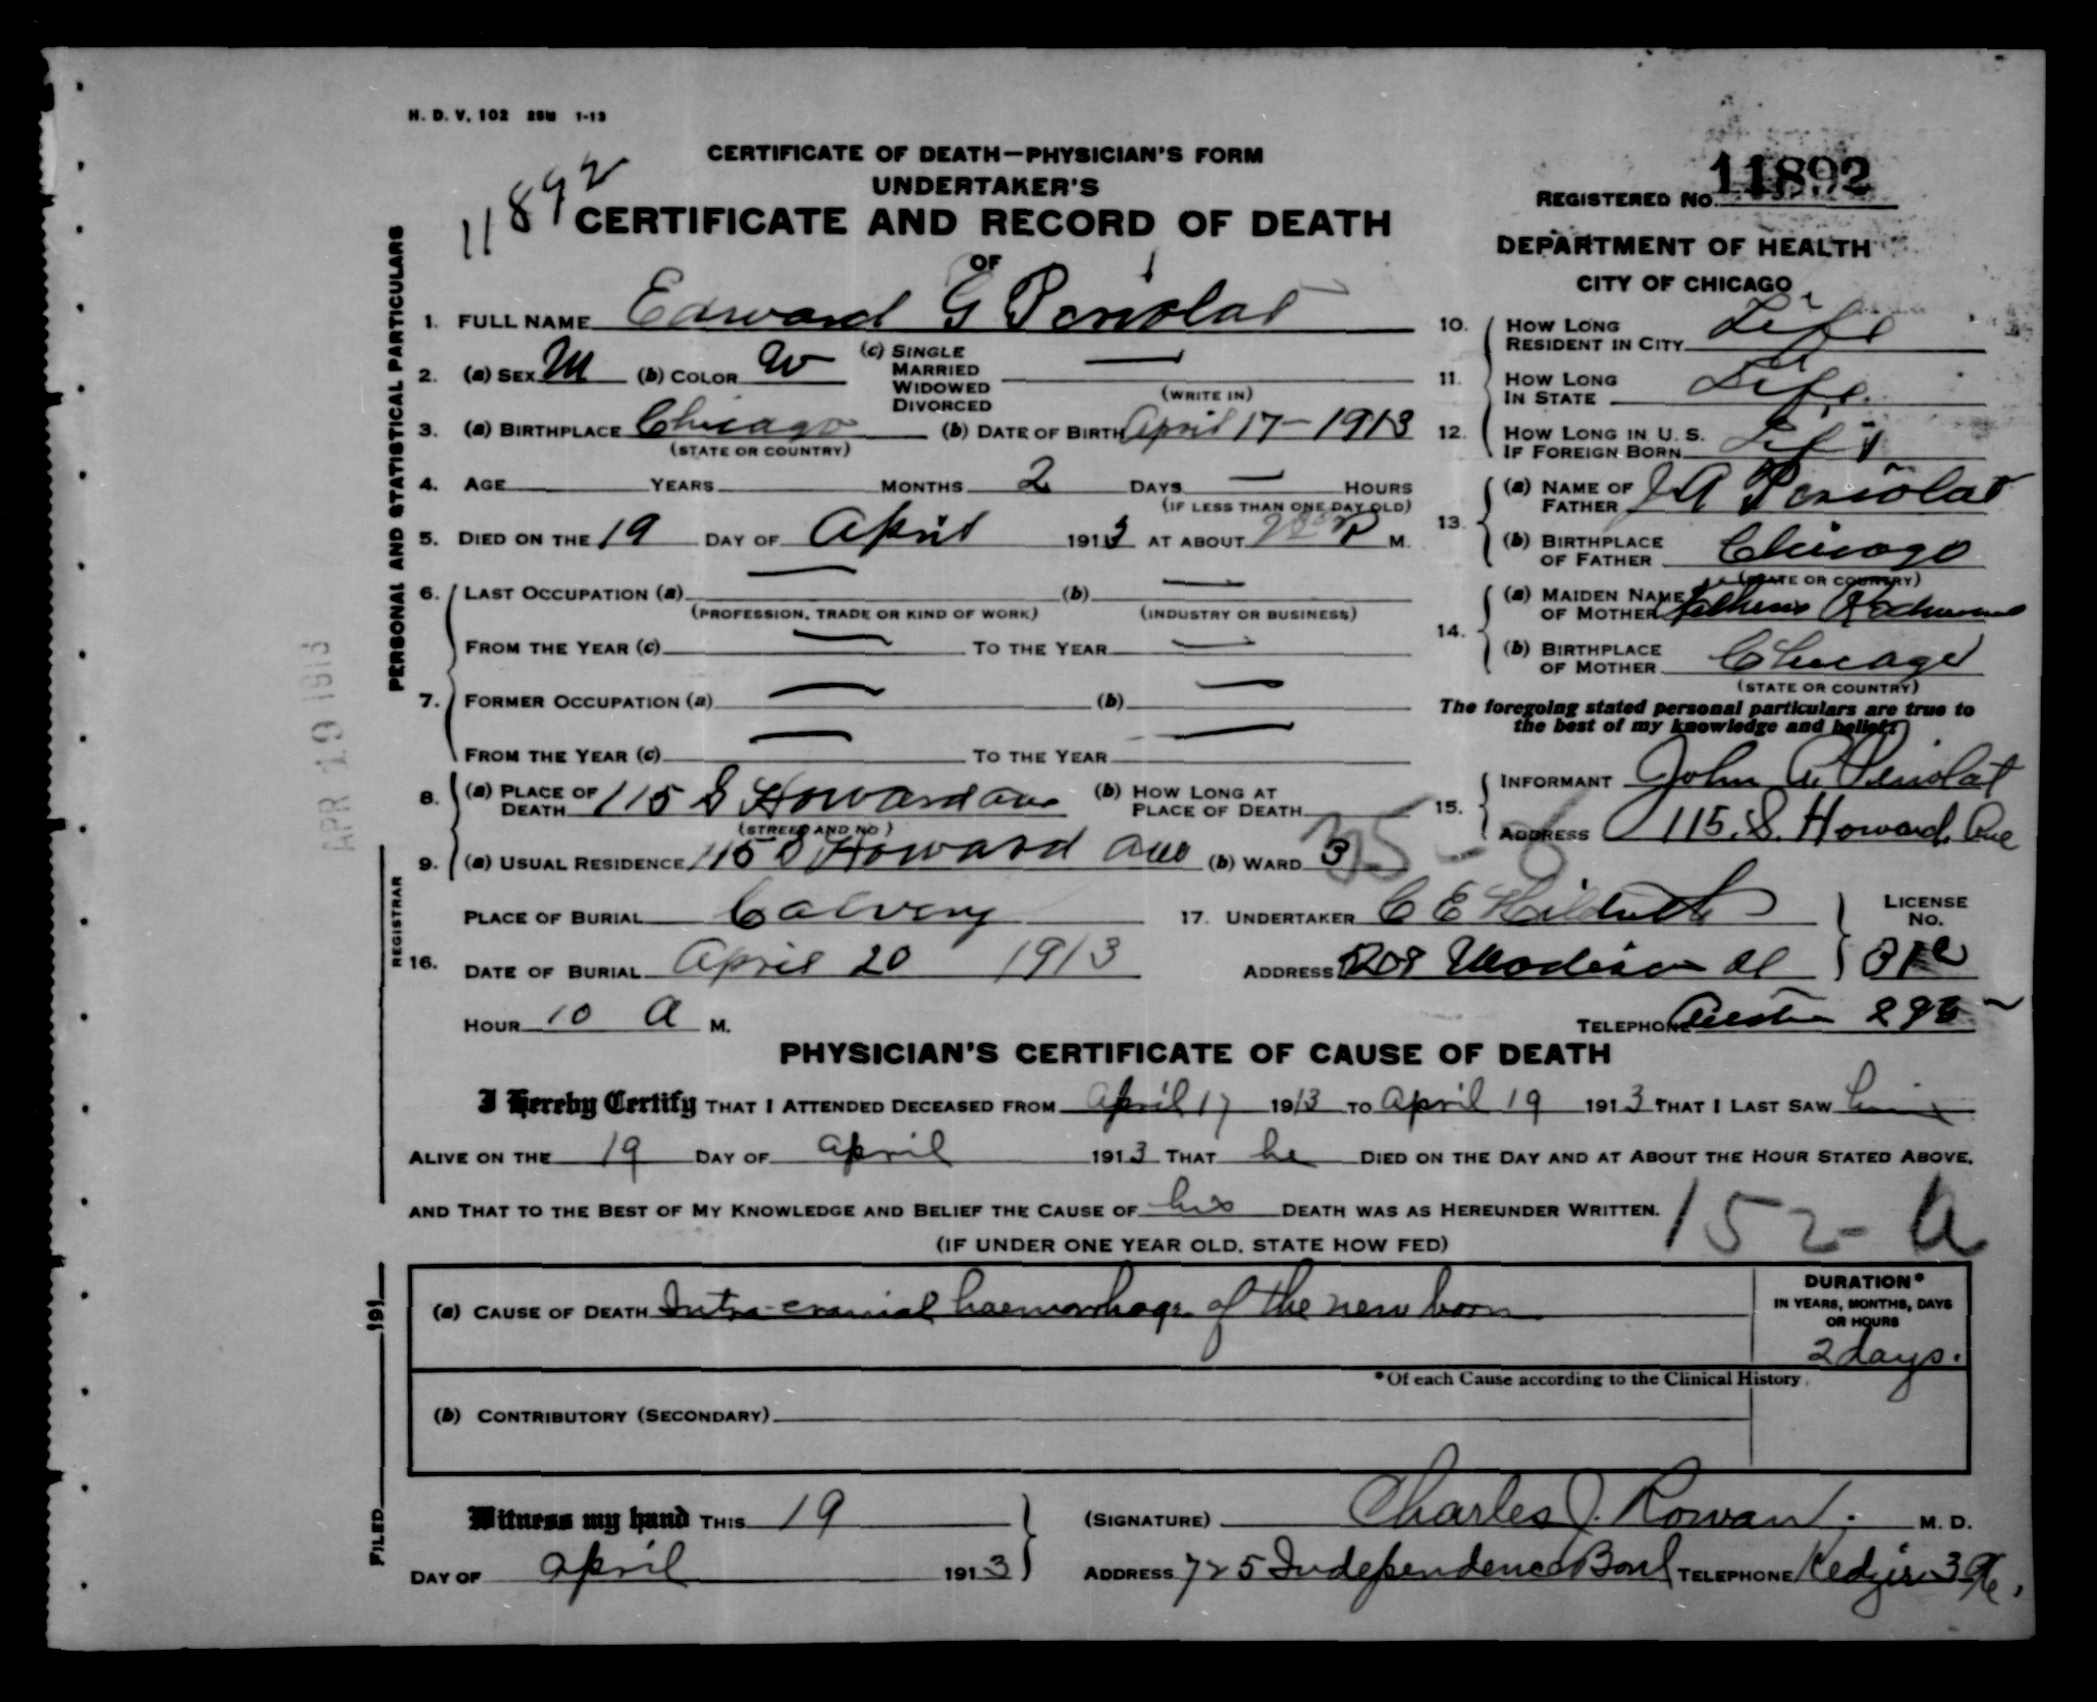 H. D. V. 102 25M 1-13
CERTIFICATE OF DEATH—PHYSICIAN'S FORM
UNDERTAKER'S
11892 CERTIFICATE AND RECORD OF DEATH
OF
REGISTERED No. 11892
DEPARTMENT OF HEALTH
CITY OF CHICAGO
PERSONAL AND STATISTICAL PARTICULARS
1. FULL NAME Edward G Periolat
2. (a) SEX M (b) COLOR W (c) SINGLE MARRIED WIDOWED DIVORCED —
(WRITE IN)
3. (a) BIRTHPLACE Chicago (b) DATE OF BIRTH April 17 – 1913
(STATE OR COUNTRY)
4. AGE YEARS MONTHS 2 DAYS — HOURS
(IF LESS THAN ONE DAY OLD)
5. DIED ON THE 19 DAY OF April 1913 AT ABOUT P M.
6. LAST OCCUPATION (a) — (b) —
(PROFESSION, TRADE OR KIND OF WORK) (INDUSTRY OR BUSINESS)
FROM THE YEAR (c) — TO THE YEAR —
7. FORMER OCCUPATION (a) — (b) —
FROM THE YEAR (c) — TO THE YEAR —
8. (a) PLACE OF DEATH 115 S Howard ave (b) HOW LONG AT PLACE OF DEATH
(STREET AND NO.)
9. (a) USUAL RESIDENCE 115 S Howard ave (b) WARD 35
10. HOW LONG RESIDENT IN CITY Life
11. HOW LONG IN STATE Life
12. HOW LONG IN U. S. IF FOREIGN BORN Life
13. (a) NAME OF FATHER J A Periolat
(b) BIRTHPLACE OF FATHER Chicago
(STATE OR COUNTRY)
14. (a) MAIDEN NAME OF MOTHER
(b) BIRTHPLACE OF MOTHER Chicago
(STATE OR COUNTRY)
The foregoing stated personal particulars are true to
the best of my knowledge and belief:
15. INFORMANT John A. Periolat
ADDRESS 115. S. Howard Ave
APR 19 1913
REGISTRAR
16. PLACE OF BURIAL Calvery
DATE OF BURIAL April 20 1913
HOUR 10 A M.
17. UNDERTAKER C E Hildreth
LICENSE No.
ADDRESS 5208 Madison st
TELEPHONE Austin
PHYSICIAN'S CERTIFICATE OF CAUSE OF DEATH
I Hereby Certify THAT I ATTENDED DECEASED FROM April 17 1913 TO April 19 1913 THAT I LAST SAW him
ALIVE ON THE 19 DAY OF April 1913 THAT he DIED ON THE DAY AND AT ABOUT THE HOUR STATED ABOVE,
AND THAT TO THE BEST OF MY KNOWLEDGE AND BELIEF THE CAUSE OF his DEATH WAS AS HEREUNDER WRITTEN.
152-a
(IF UNDER ONE YEAR OLD, STATE HOW FED)
(a) CAUSE OF DEATH Intra-cranial haemorrhage of the new born
DURATION*
IN YEARS, MONTHS, DAYS
OR HOURS
2 days.
*Of each Cause according to the Clinical History.
(b) CONTRIBUTORY (SECONDARY)
FILED 191
Witness my hand THIS 19
DAY OF April 1913
(SIGNATURE) Charles J. Rowan, M. D.
ADDRESS 725 Independence Boul TELEPHONE Kedzie